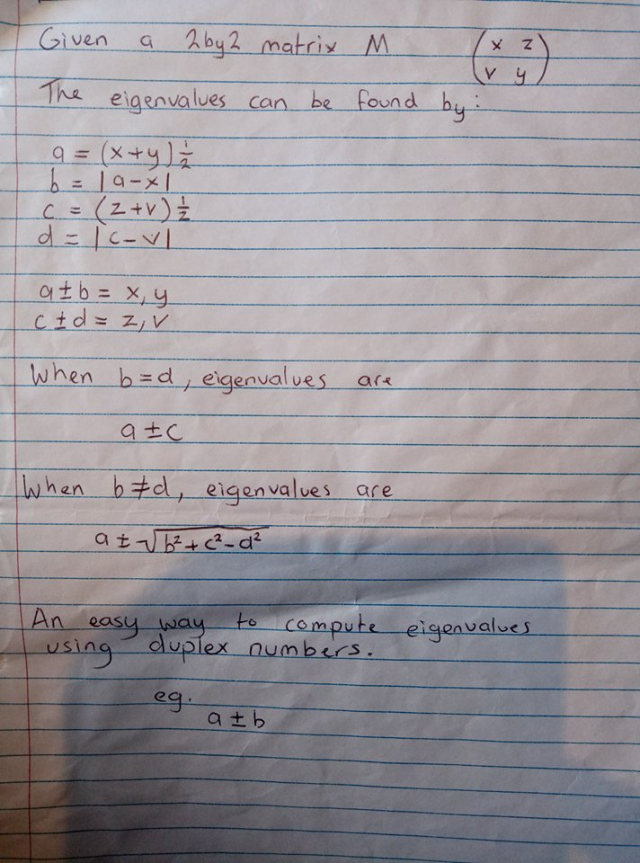 Given a 2by2 matrix M (x z
v y)
The eigenvalues can be found by:
a = (x+y)½
b = |a-x|
c = (z+v)½
d = |c-v|
a±b = x, y
c±d = z, v
When b=d, eigenvalues are
a±c
When b≠d, eigenvalues are
a ± √(b²+c²-d²)
An easy way to compute eigenvalues
using duplex numbers.
eg.
a±b